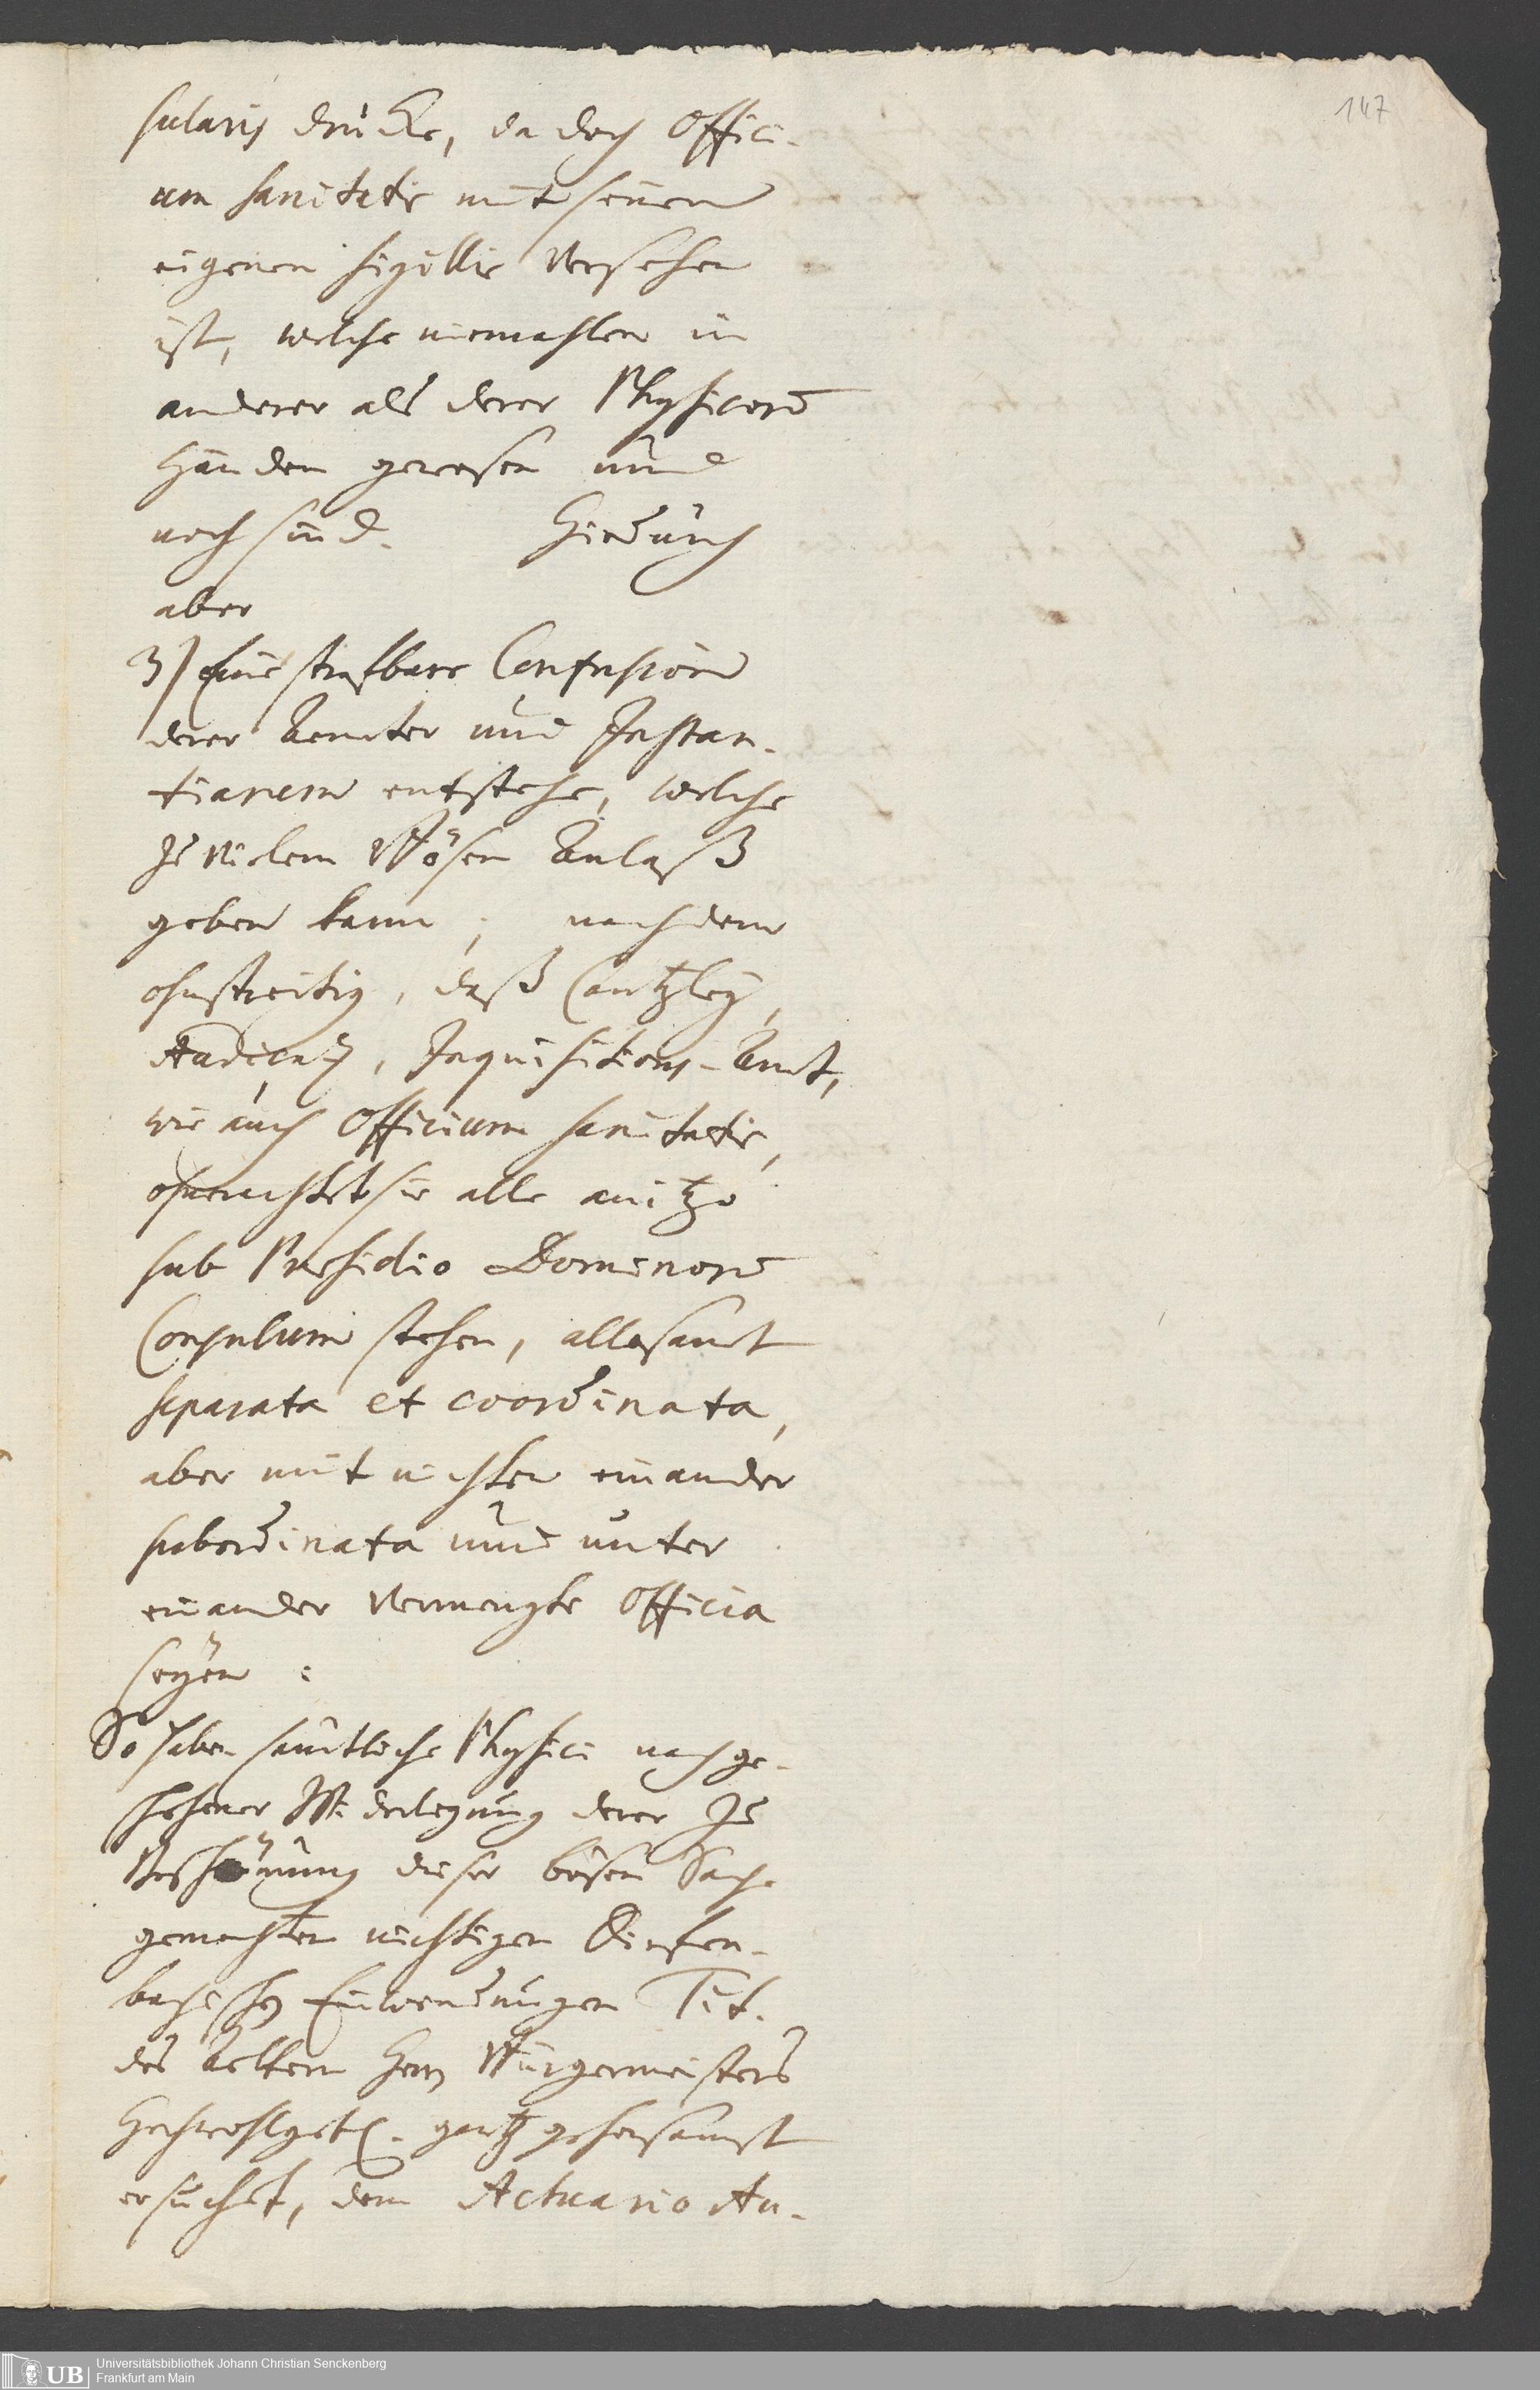 147
sularis drücke, da doch Offici-
um sanitatis mit seinen
eigenen sigillis versehen
ist, welche niemahlen in
anderer als derer Physicorum
Händen gewesen und
noch sind. Hiedurch
aber
3) Eine strafbare Confusion
derer Aemter und Instan-
tiarum entstehe, welche
zu vielem Bösen Anlaß
geben kann; nachdem
ohnstreitig, daß Cantzley,
Audientz, Inquisitions-Amt,
wie auch Officium sanitatis,
ohnerachtet sie alle anitzo
sub Præsidio Dominorum
Consulum stehen, allesamt
separata et coordinata,
aber mit nichten einander
subordinata und unter
einander vermengte Officia
seyen:
So haben sämtliche Physici nach ge-
schehener Wiederlegung derer zu
Beschönung dieser bösen Sache
gemachten nichtigen Diefen-
bachischen Einwendungen Tit.
des Aeltern Herrn Bürgermeisters
Hochwohlgeb. gantz gehorsamst
ersuchet, dem Actuario Au-
Universitätsbibliothek Johann Christian Senckenberg
Frankfurt am Main
UB